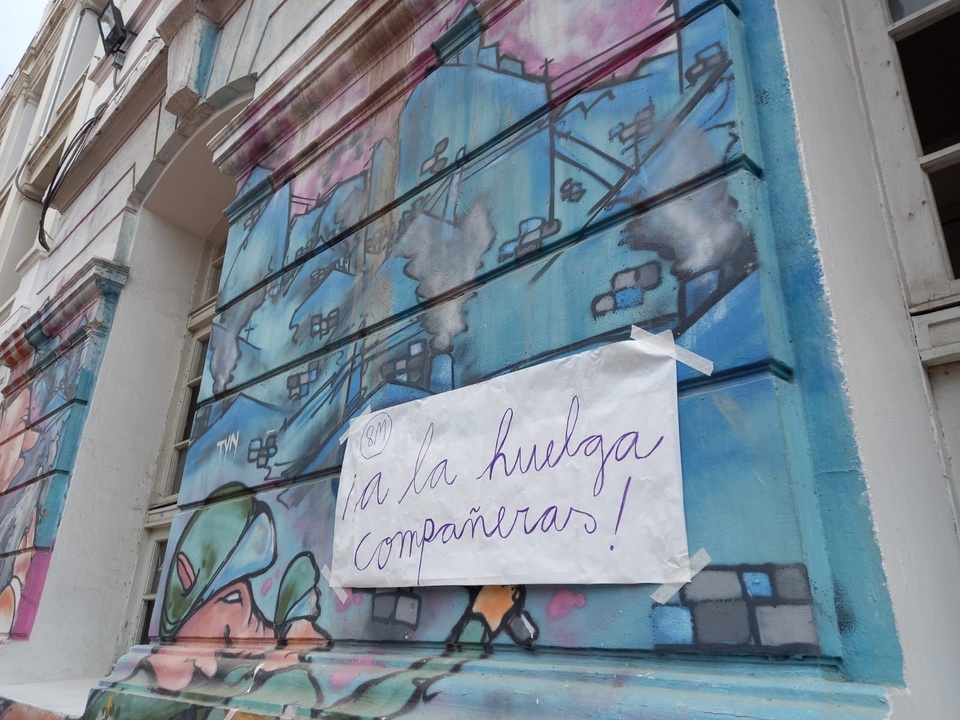 8M
¡a la huelga
compañeras!
TVN